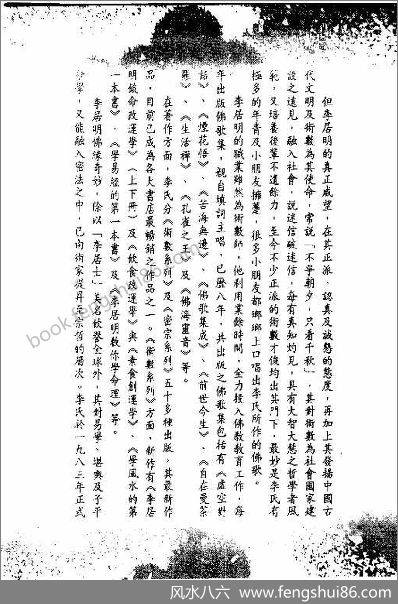 但李居明的真正威望，在其正派、認真及誠懇的態度，再加上其發揚中國古
代文明及術數為其使命，常說「不爭朝夕，只看千秋」，其對術數為社會國家建
設之遠見，融入社會，說迷信破迷信，每有真知灼見，具有大智大慧之哲學者風
範，又培養後輩不遺餘力，至今不少正派的術數才俊均出其門下，最妙是李氏有
極多的年青及小朋友擁躉，很多小朋友都瑯瑯上口唱出李氏所作的佛歌。
李居明的職業雖然為術數師，他利用業餘時間，全力投入佛教教育工作，每
年出版佛歌集，親自填詞主唱，已歷八年，共出版之佛歌集包括有《虛空對
話》、《煙花悟》、《苦海無邊》、《佛歌集成》、《前世今生》、《自在曼荼
羅》、《生活禪》、《孔雀之王》及《佛海靈音》等。
在著作方面，李氏分《術數系列》及《密宗系列》五十多種出版，其最新作
品，目前已成為各大書店最暢銷之作品之一。《術數系列》方面，新作有《李居
明饒命改運學》（上下冊）及《飲食改運學》與《素食創運學》、《學風水的第
一本書》、《學易經的第一本書》及《李居明教你學命理》等。
李居明佛緣奇妙，除以「李居士」美名飲譽全球外，其對易學、堪輿及子平
學，又能融入密法之中，已向術家提昇至宗哲的層次。李氏於一九八三年正式
bookfengshui86.com
风水八六 | www.fengshui86.com